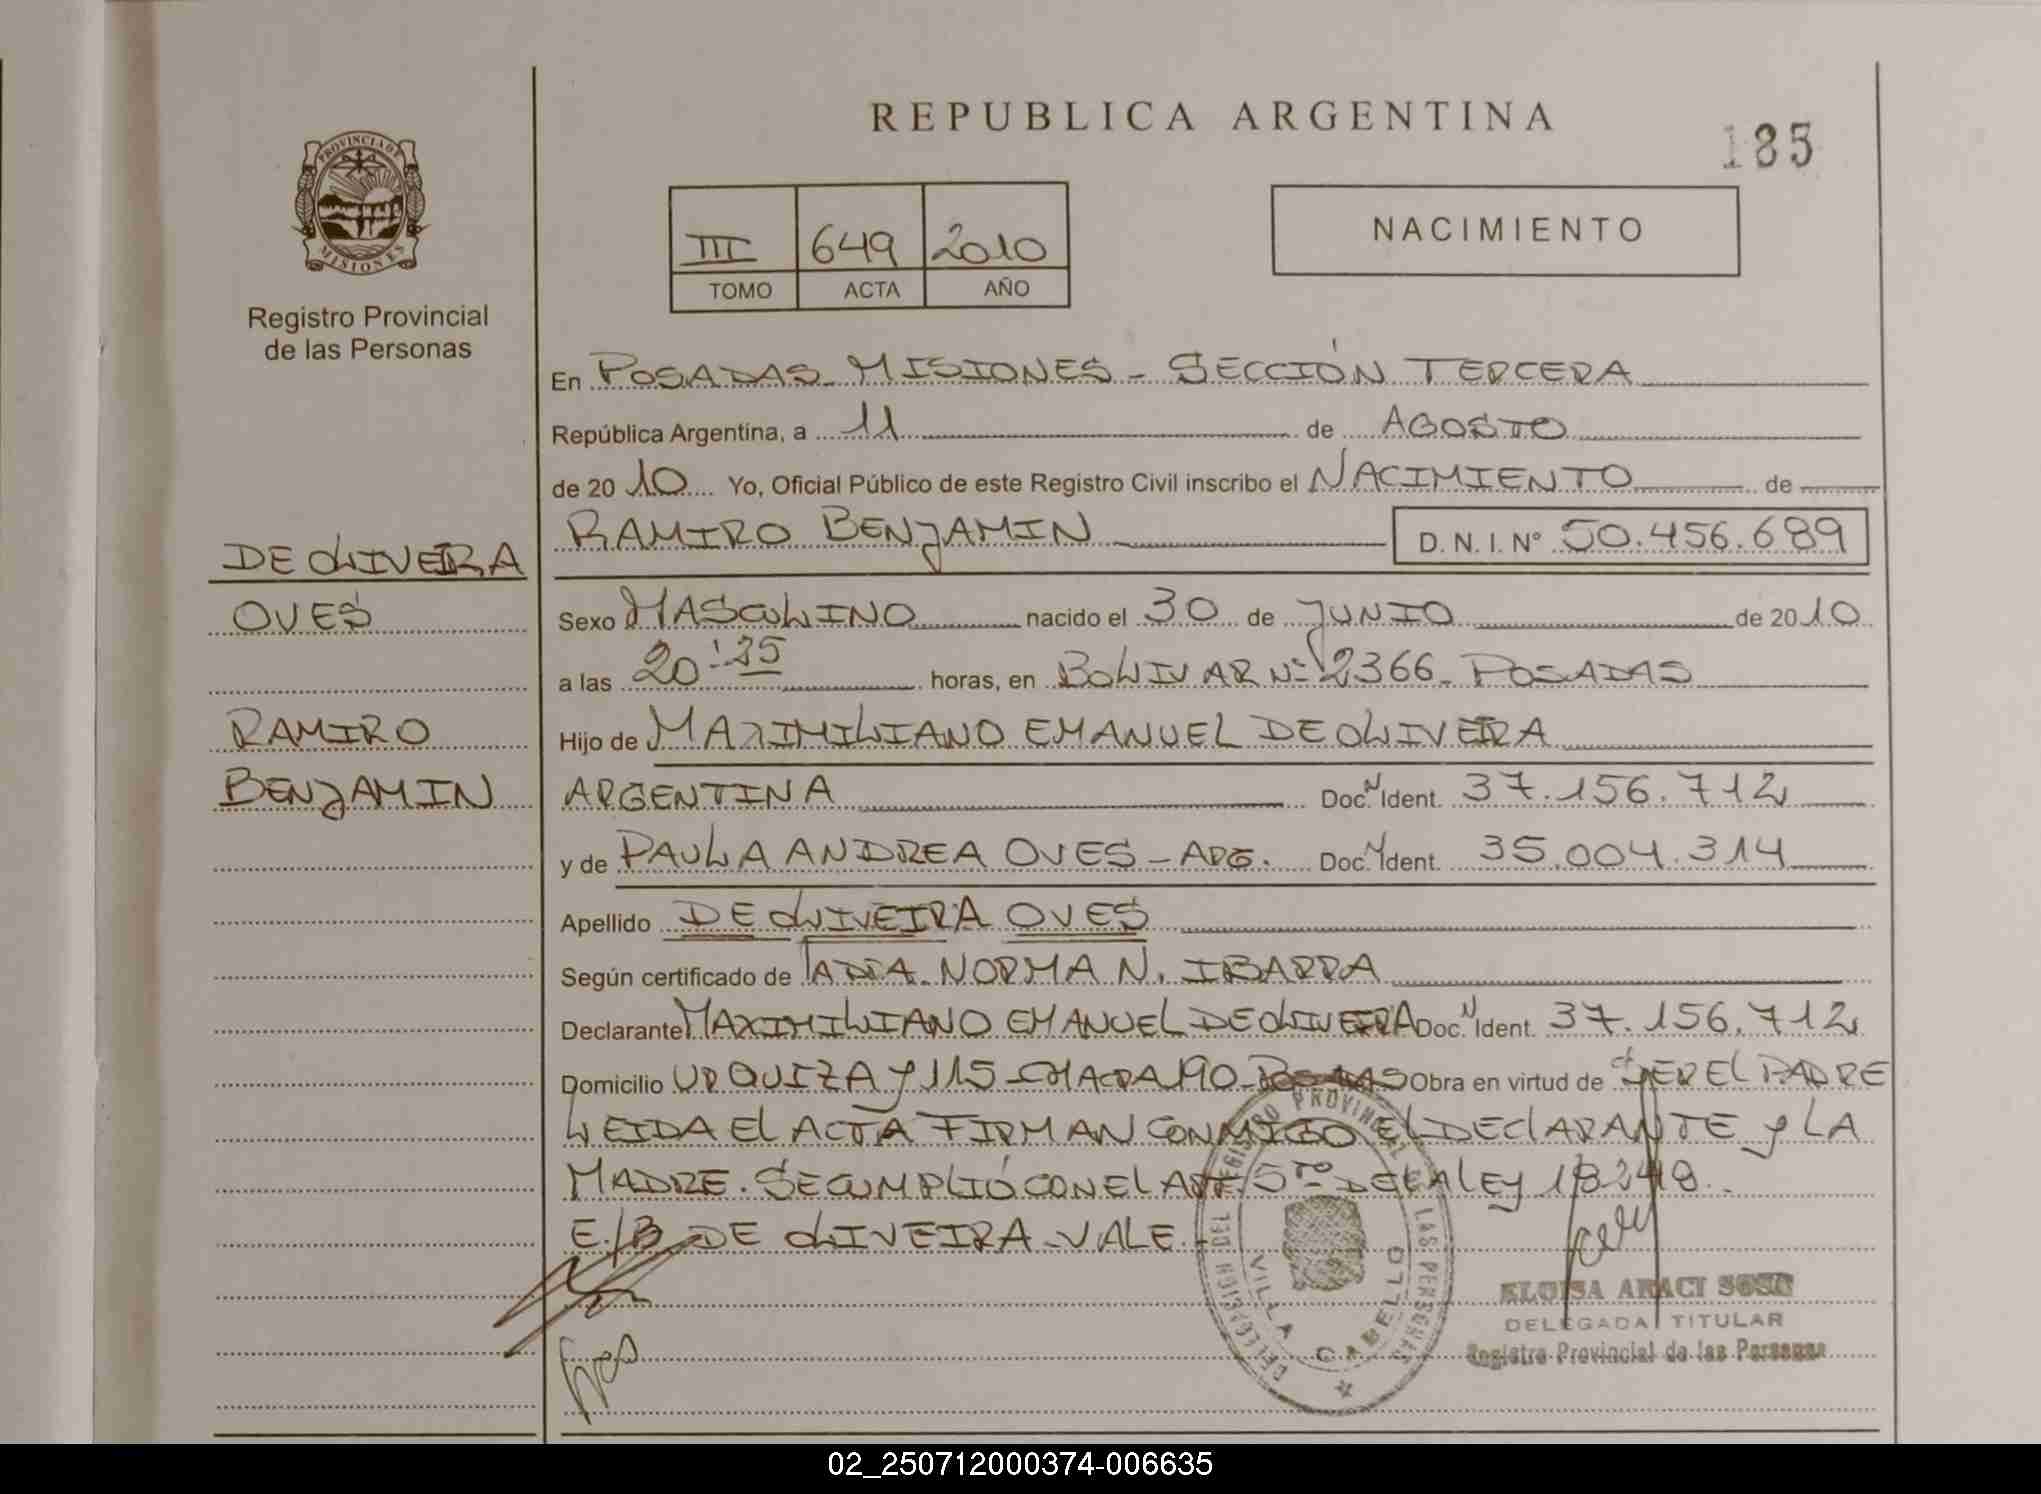 REPUBLICA ARGENTINA
185
PROVINCIA DE
MISIONES
Registro Provincial
de las Personas
III 649 2010
TOMO ACTA AÑO
NACIMIENTO
En POSADAS MISIONES - SECCIÓN TERCERA
República Argentina, a 11 de AGOSTO
de 2010 Yo, Oficial Público de este Registro Civil inscribo el NACIMIENTO de
RAMIRO BENJAMIN D. N. I. N° 50.456.689
DE OLIVEIRA
OVES
RAMIRO
BENJAMIN
Sexo MASCULINO nacido el 30 de JUNIO de 2010
a las 20:25 horas, en BOLIVAR Nº 2366 - POSADAS
Hijo de MAXIMILIANO EMANUEL DE OLIVEIRA
ARGENTINA Doc. N Ident. 37.156.712
y de PAULA ANDREA OVES - ARG. Doc. N Ident. 35.004.314
Apellido DE OLIVEIRA OVES
Según certificado de NORMA N. IBARRA
Declarante MAXIMILIANO EMANUEL DE OLIVEIRA Doc. N Ident. 37.156.712
Domicilio URQUIZA Y 115 - CHACRA 190 - POSADAS Obra en virtud de SER EL PADRE
LEIDA EL ACTA FIRMAN CONMIGO EL DECLARANTE Y LA
MADRE. SE CUMPLIÓ CON EL ART. 5TO DE LA LEY 18248.
E/B DE OLIVEIRA - VALE -
DELEGACION DEL REGISTRO PROVINCIAL DE LAS PERSONAS
VILLA CABELLO
ELOISA ARACI SOSA
DELEGADA TITULAR
Registro Provincial de las Personas
02_250712000374-006635